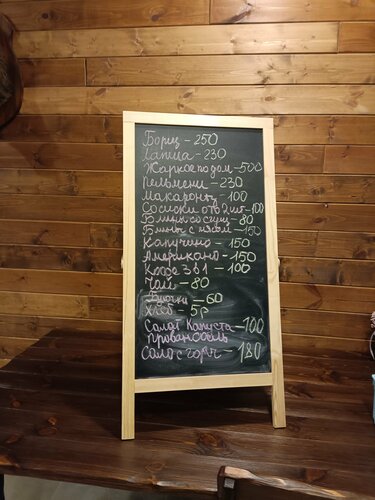 Борщ - 250
Лапша - 230
Жаркое по дом - 500
Пельмени - 230
Макароны - 100
Сосиски отв 2 шт - 100
Блины со сгущ - 80
Блины с мясом - 150
Капучино - 150
Американо - 150
Кофе 3в1 - 100
Чай - 80
Булочки - 60
Хлеб - 5р
Салат капуста - 100
Провансаль
Сало с горч - 180